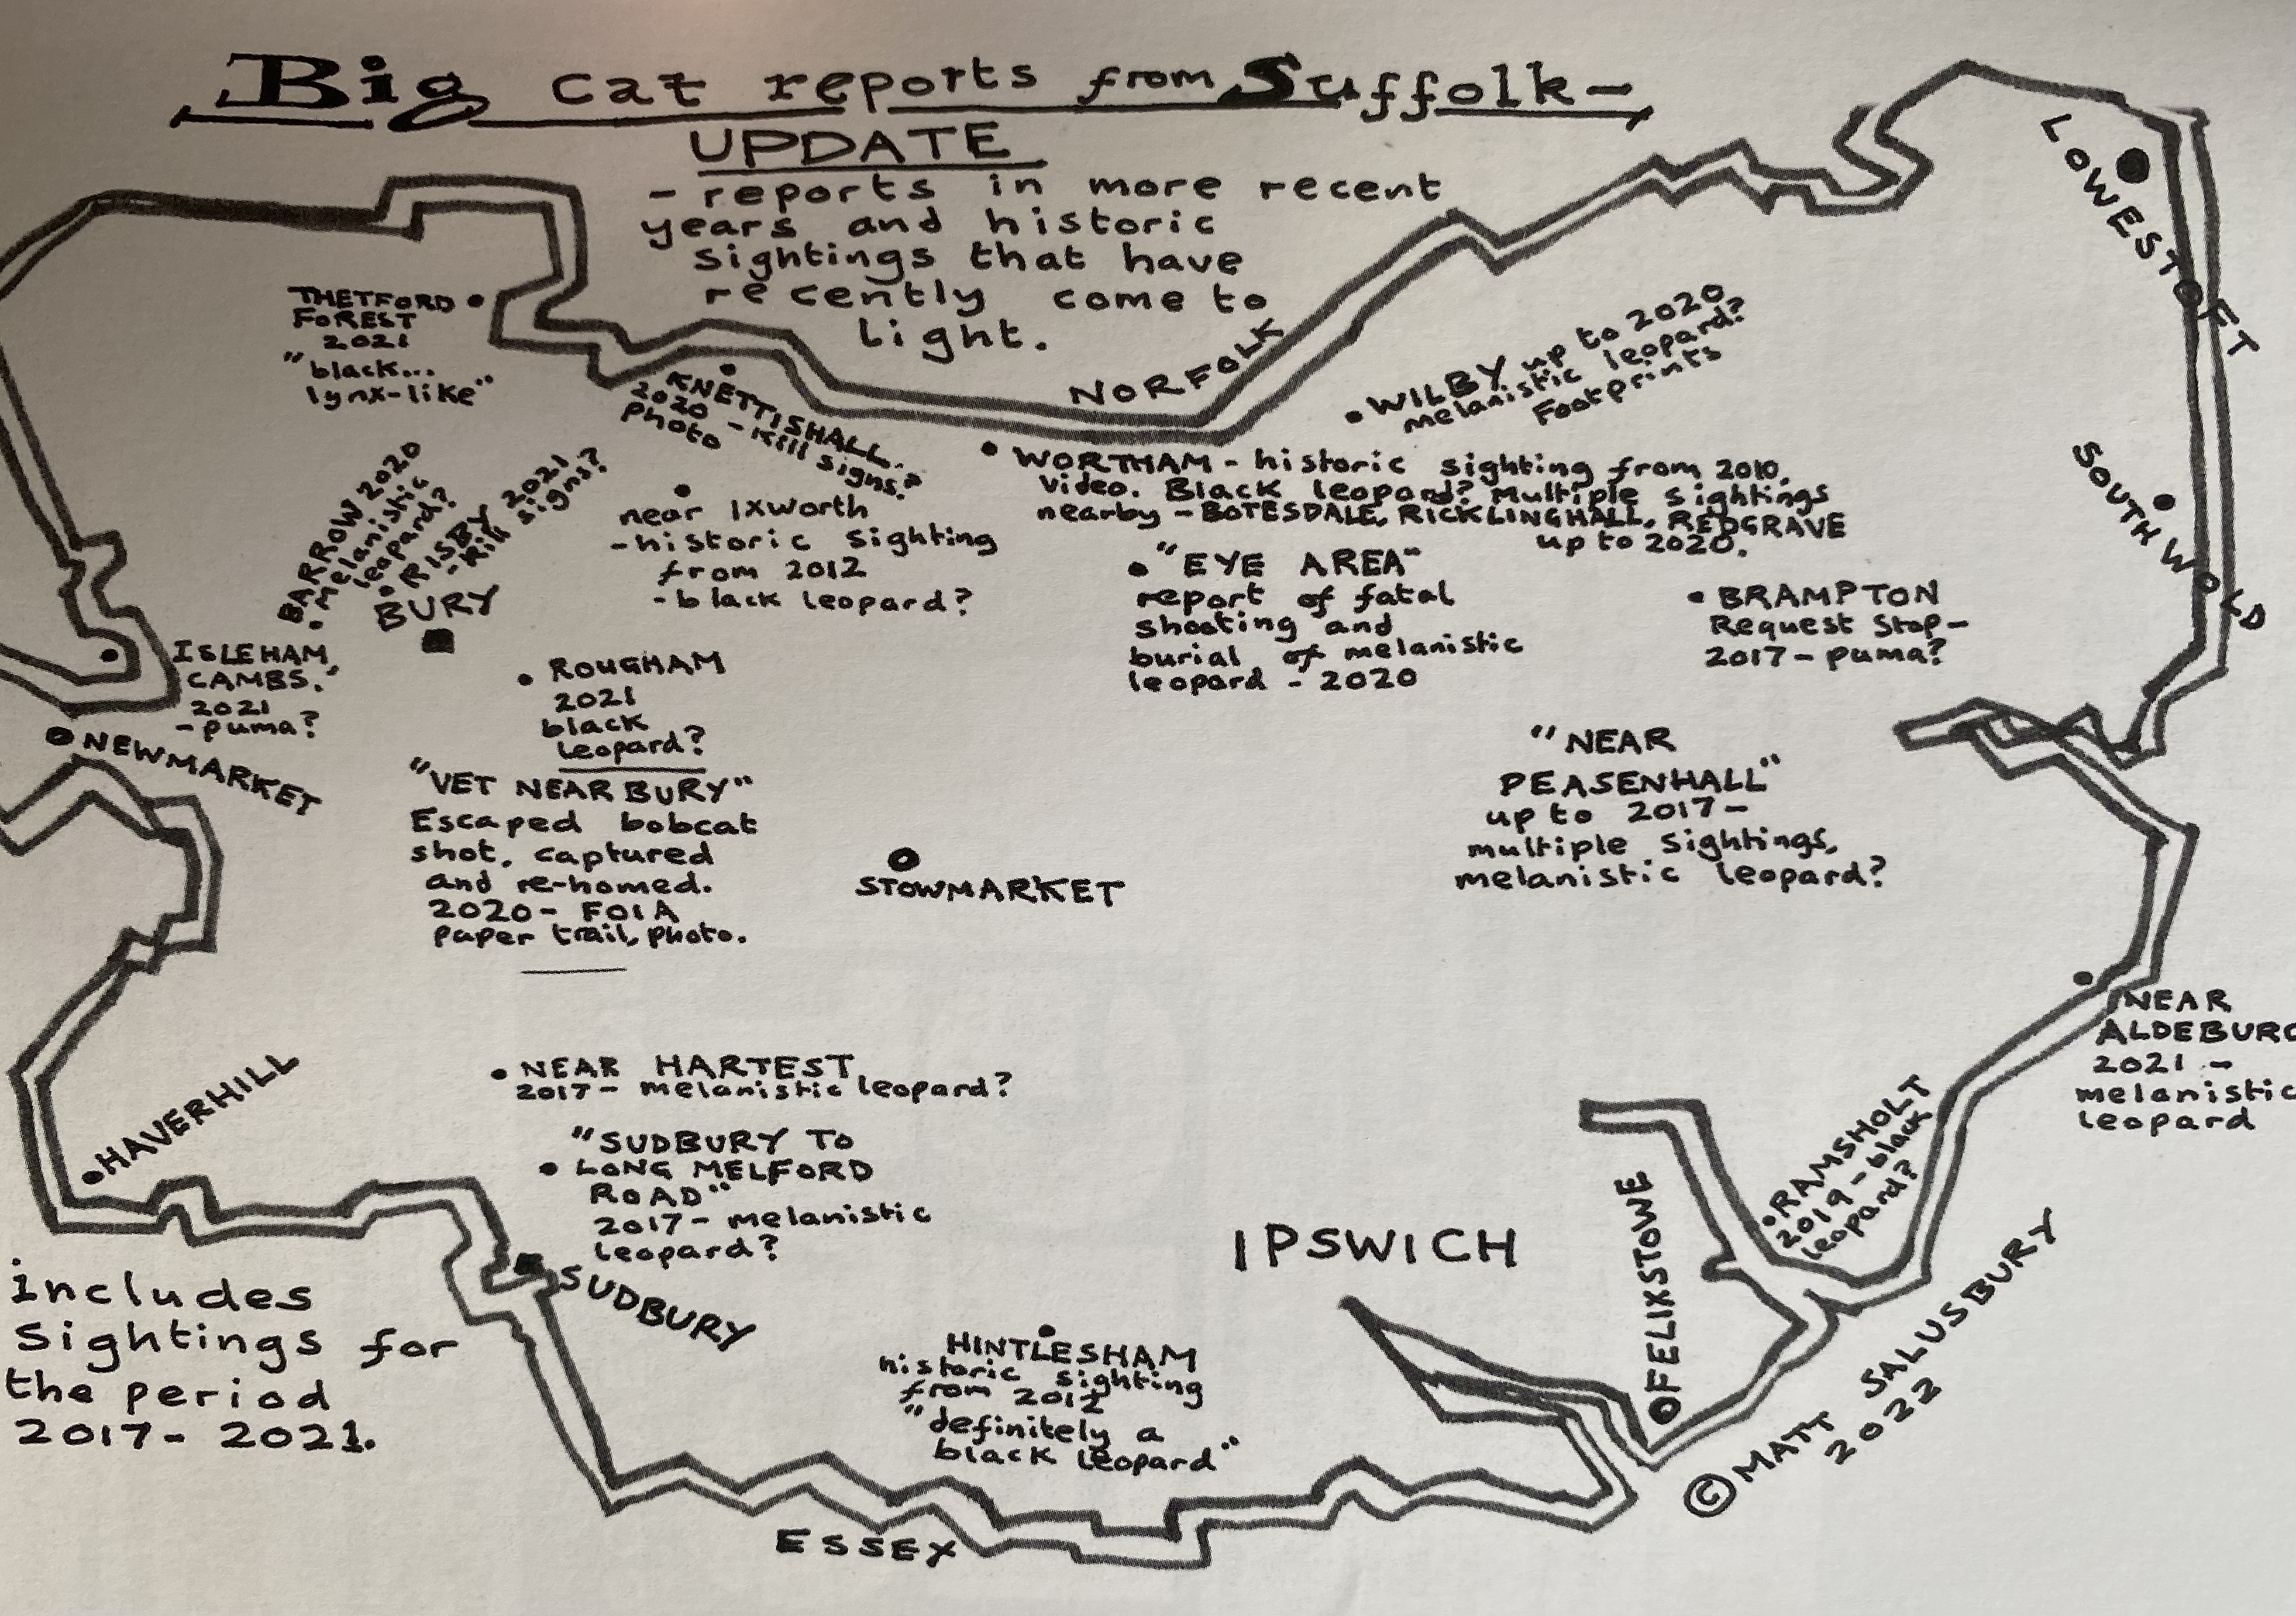 Big cat reports from Suffolk-
UPDATE
- reports in more recent
years and historic
sightings that have
recently come to
light.
LOWESTOFT
THETFORD
FOREST
2021
"black...
lynx-like"
KNETTISHALL.
2020 - Kill signs?
Photo
NORFOLK
WILBY up to 2020
melanistic leopard?
Footprints
WORTHAM - historic sighting from 2010,
Video. Black leopard? Multiple sightings
nearby - BOTESDALE, RICKLINGHALL, REDGRAVE
up to 2020.
SOUTHWOLD
BARROW 2020
melanistic
leopard?
RISBY 2021
- Kill signs?
BURY
near Ixworth
- historic sighting
from 2012
- black leopard?
"EYE AREA"
report of fatal
shooting and
burial of melanistic
leopard - 2020
BRAMPTON
Request Stop-
2017 - puma?
ISLEHAM,
CAMBS.
2021
- puma?
NEWMARKET
ROUGHAM
2021
black
leopard?
"VET NEAR BURY"
Escaped bobcat
shot, captured
and re-homed.
2020 - FOIA
paper trail, photo.
STOWMARKET
"NEAR
PEASENHALL"
up to 2017 -
multiple sightings,
melanistic leopard?
NEAR
ALDEBURG
2021 -
melanistic
leopard
HAVERHILL
NEAR HARTEST
2017 - melanistic leopard?
"SUDBURY TO
LONG MELFORD
ROAD"
2017 - melanistic
leopard?
SUDBURY
IPSWICH
FELIXSTOWE
RAMSHOLT
2019 - black
leopard?
includes
sightings for
the period
2017 - 2021.
HINTLESHAM
historic sighting
from 2012
"definitely a
black leopard"
ESSEX
© MATT SALUSBURY
2022